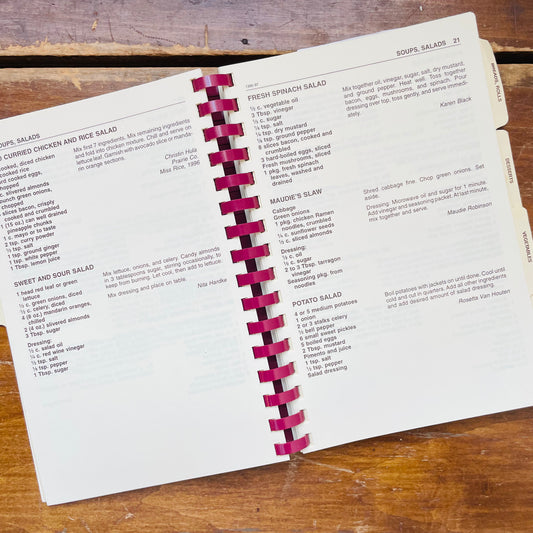 SOUPS, SALADS
CURRIED CHICKEN AND RICE SALAD
cooked, diced chicken
cooked rice
cooked eggs,
chopped
c. slivered almonds
bunch green onions,
chopped
slices bacon, crispy
cooked and crumbled
1 (15 oz.) can well drained
pineapple chunks
1 c. mayo or to taste
2 tsp. curry powder
½ tsp. salt
1 tsp. ground ginger
1 tsp. white pepper
1 Tbsp. lemon juice
Mix first 7 ingredients. Mix remaining ingredients
and fold into chicken mixture. Chill and serve on
lettuce leaf. Garnish with avocado slice or manda-
rin orange sections.
Christin Hula
Prairie Co.
Miss Rice, 1996
SWEET AND SOUR SALAD
1 head red leaf or green
lettuce
½ c. green onions, diced
½ c. celery, diced
4 (8 oz.) mandarin oranges,
chilled
2 (4 oz.) slivered almonds
3 Tbsp. sugar
Dressing:
½ c. salad oil
¼ c. red wine vinegar
½ tsp. salt
¼ tsp. pepper
1 Tbsp. sugar
Mix lettuce, onions, and celery. Candy almonds
in 3 tablespoons sugar, stirring occasionally, to
keep from burning. Let cool, then add to lettuce.
Mix dressing and place on table.
Nita Hardke
SOUPS, SALADS 21
FRESH SPINACH SALAD
½ c. vegetable oil
3 Tbsp. vinegar
½ c. sugar
¼ tsp. salt
¼ tsp. dry mustard
⅛ tsp. ground pepper
6 slices bacon, cooked and
crumbled
3 hard-boiled eggs, sliced
Fresh mushrooms, sliced
1 pkg. fresh spinach
leaves, washed and
drained
Mix together oil, vinegar, sugar, salt, dry mustard,
and ground pepper. Heat well. Toss together
bacon, eggs, mushrooms, and spinach. Pour
dressing over top, toss gently, and serve immedi-
ately.
Karen Black
MAUDIE'S SLAW
Cabbage
Green onions
1 pkg. chicken Ramen
noodles, crumbled
¼ c. sunflower seeds
½ c. sliced almonds
Dressing:
½ c. oil
½ c. sugar
2 to 3 Tbsp. tarragon
vinegar
Seasoning pkg. from
noodles
Shred cabbage fine. Chop green onions. Set
aside.
Dressing: Microwave oil and sugar for 1 minute.
Add vinegar and seasoning packet. At last minute,
mix together and serve.
Maudie Robinson
POTATO SALAD
4 or 5 medium potatoes
1 onion
2 or 3 stalks celery
½ bell pepper
6 small sweet pickles
5 boiled eggs
2 Tbsp. mustard
Pimento and juice
1 tsp. salt
½ tsp. pepper
Salad dressing
Boil potatoes with jackets on until done. Cool until
cold and cut in quarters. Add all other ingredients
and add desired amount of salad dressing.
Rosetta Van Houten
BREADS, ROLLS
DESSERTS
VEGETABLES